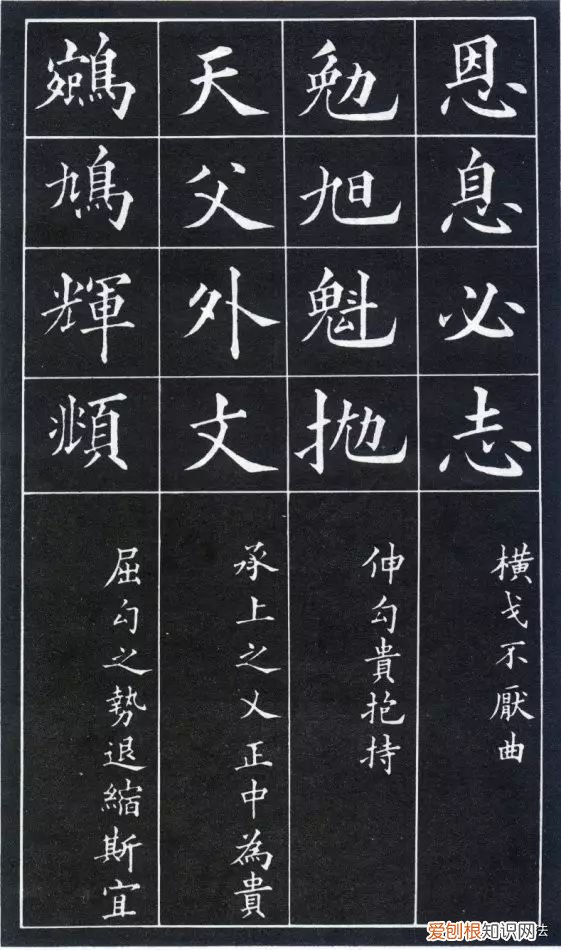 恩息必志
横戈不厭曲
勉旭魁抛
伸勾貴抱持
天父外丈
承上之乂正中為貴
鳩輝頫
屈勾之勢退縮斯宜
爱刨根知识网法